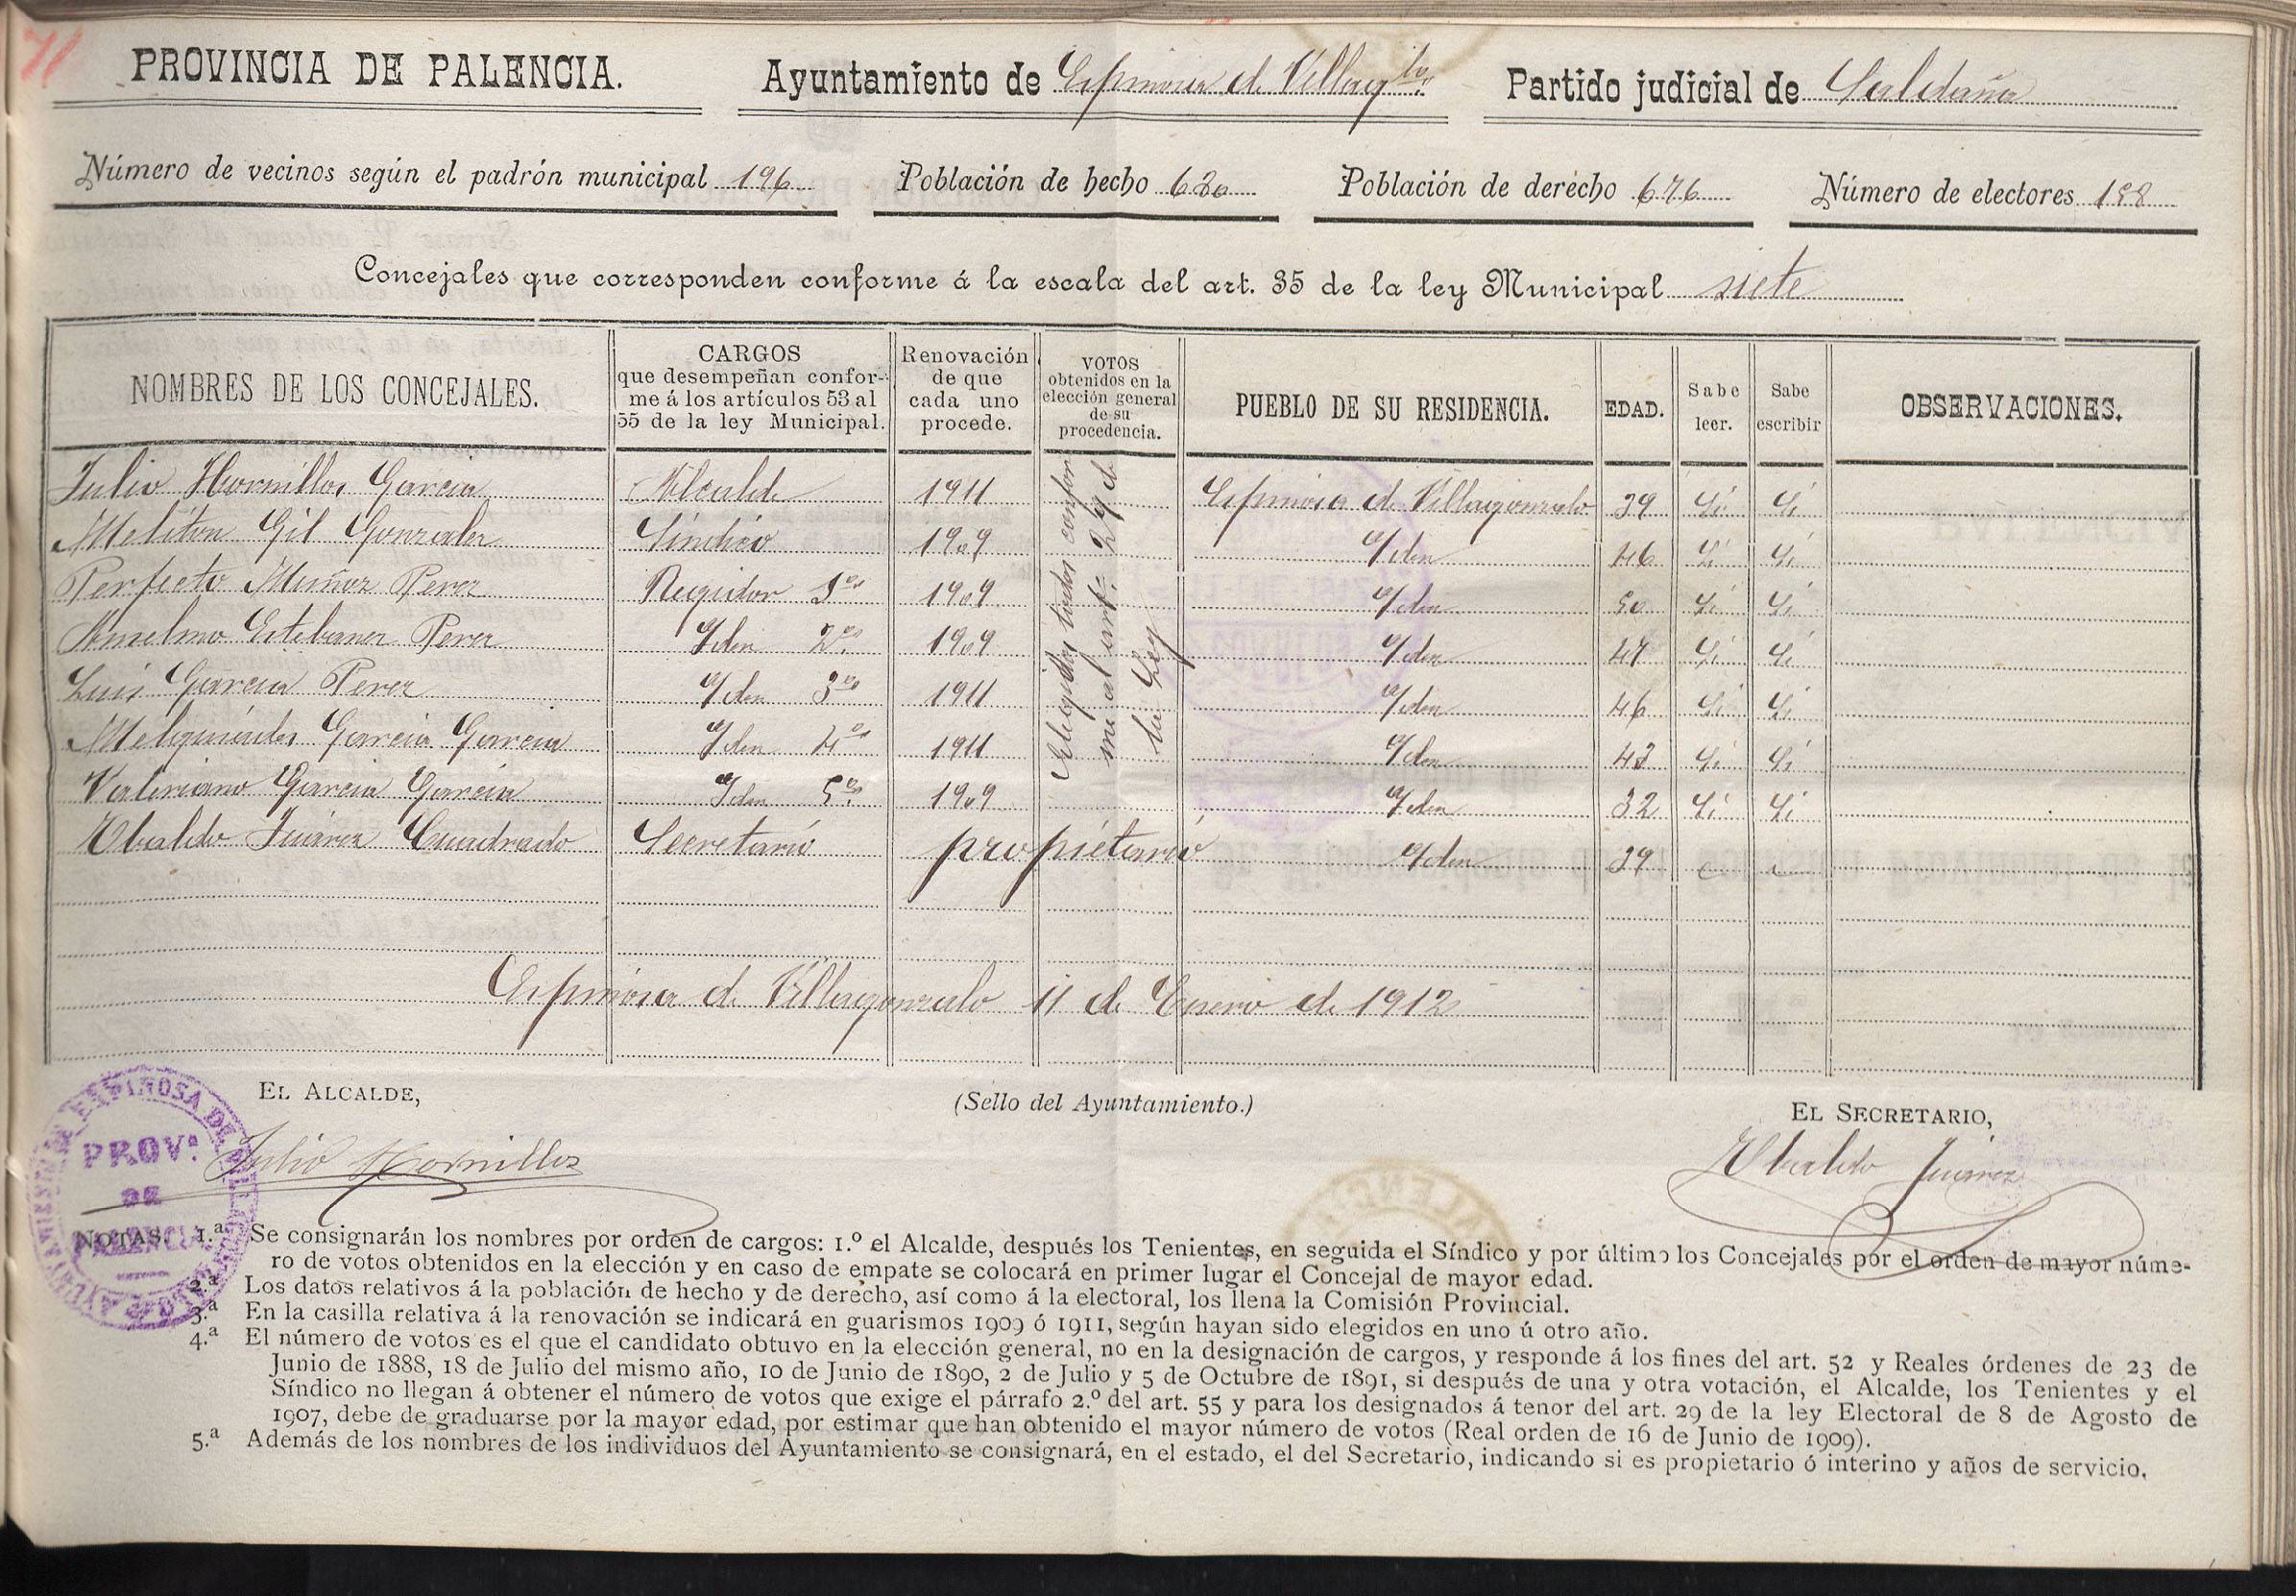 71
PROVINCIA DE PALENCIA. Ayuntamiento de Espinosa de Villaglo. Partido judicial de Saldaña
Número de vecinos según el padrón municipal 196 Población de hecho 620 Población de derecho 676 Número de electores 188
Concejales que corresponden conforme á la escala del art. 35 de la ley Municipal siete
NOMBRES DE LOS CONCEJALES. CARGOS que desempeñan conforme á los artículos 53 al 55 de la ley Municipal. Renovación de que cada uno procede. VOTOS obtenidos en la elección general de su procedencia. PUEBLO DE SU RESIDENCIA. EDAD. Sabe leer. Sabe escribir OBSERVACIONES.
Julio Hornillos Garcia Alcalde 1911 Espinosa de Villagonzalo 39 Si Si
Meliton Gil Gonzalez Sindico 1909 Iden 46 Si Si
Perfecto Muñoz Perez Regidor 1º 1909 Iden 50 Si Si
Anselmo Estebanez Perez Iden 2º 1909 Iden 47 Si Si
Luis Garcia Perez Iden 3º 1911 Iden 46 Si Si
Melquiades Garcia Garcia Iden 4º 1911 Iden 43 Si Si
Valeriano Garcia Garcia Iden 5º 1909 Iden 32 Si Si
Elegidos todos conforme al artº 29 de la Ley
Ubaldo Juárez Cuadrado Secretario propietario Iden 39
Espinosa de Villagonzalo 11 de Enero de 1912
EL ALCALDE, (Sello del Ayuntamiento.) EL SECRETARIO,
Julio Hornillos Ubaldo Juarez
AYUNTAMIENTO DE ESPINOSA DE VILLAGONZALO
PROVª DE PALENCIA
NOTAS. 1.ª Se consignarán los nombres por orden de cargos: 1.º el Alcalde, después los Tenientes, en seguida el Síndico y por último los Concejales por el orden de mayor núme-
ro de votos obtenidos en la elección y en caso de empate se colocará en primer lugar el Concejal de mayor edad.
2.ª Los datos relativos á la población de hecho y de derecho, así como á la electoral, los llena la Comisión Provincial.
3.ª En la casilla relativa á la renovación se indicará en guarismos 1909 ó 1911, según hayan sido elegidos en uno ú otro año.
4.ª El número de votos es el que el candidato obtuvo en la elección general, no en la designación de cargos, y responde á los fines del art. 52 y Reales órdenes de 23 de
Junio de 1888, 18 de Julio del mismo año, 10 de Junio de 1890, 2 de Julio y 5 de Octubre de 1891, si después de una y otra votación, el Alcalde, los Tenientes y el
Síndico no llegan á obtener el número de votos que exige el párrafo 2.º del art. 55 y para los designados á tenor del art. 29 de la ley Electoral de 8 de Agosto de
1907, debe de graduarse por la mayor edad, por estimar que han obtenido el mayor número de votos (Real orden de 16 de Junio de 1909).
5.ª Además de los nombres de los individuos del Ayuntamiento se consignará, en el estado, el del Secretario, indicando si es propietario ó interino y años de servicio.